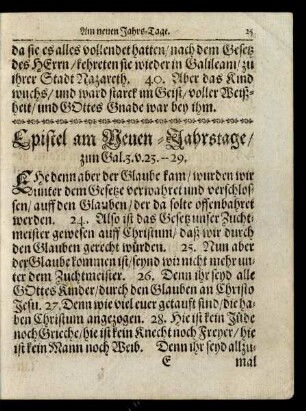 Am neuen Jahrs-Tage. 25
da sie es alles vollendet hatten / nach dem Gesetz
des HErrn / kehreten sie wieder in Galileam / zu
ihrer Stadt Nazareth. 40. Aber das Kind
wuchs / und ward starck im Geist / voller Weiß-
heit / und GOttes Gnade war bey ihm.
Epistel am Neuen-Jahrstage /
zun Gal. 3. v. 23. - 29.
EHe denn aber der Glaube kam / wurden wir
unter dem Gesetze verwahret und verschlos-
sen / auff den Glauben / der da solte offenbahret
werden. 24. Also ist das Gesetz unser Zucht-
meister gewesen auff Christum / daß wir durch
den Glauben gerecht würden. 25. Nun aber
der Glaube kommen ist / seynd wir nicht mehr un-
ter dem Zuchtmeister. 26. Denn ihr seyd alle
GOttes Kinder / durch den Glauben an Christo
Jesu. 27. Denn wie viel euer getaufft sind / die ha-
ben Christum angezogen. 28. Hie ist kein Jüde
noch Grieche / hie ist kein Knecht noch Freyer / hie
ist kein Mann noch Weib. Denn ihr seyd allzu-
E mal